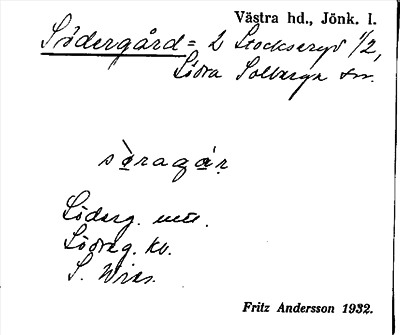 Västra hd., Jönk. l.
Södergård = 2 Stockseryd 1/2,
Södra Solberga sn.
sø̀ragár
Söderg.
Södreg. kv.
S.
Fritz Andersson 1932.